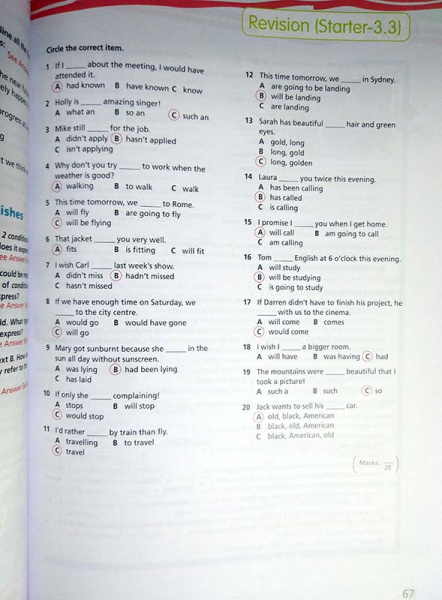 Revision (Starter-3.3)
Circle the correct item.
1 If I _____ about the meeting, I would have
attended it.
A had known B have known C know
2 Holly is _____ amazing singer!
A what an B so an C such an
3 Mike still _____ for the job.
A didn't apply B hasn't applied
C isn't applying
4 Why don't you try _____ to work when the
weather is good?
A walking B to walk C walk
5 This time tomorrow, we _____ to Rome.
A will fly B are going to fly
C will be flying
6 That jacket _____ you very well.
A fits B is fitting C will fit
7 I wish Carl _____ last week's show.
A didn't miss B hadn't missed
C hasn't missed
8 If we have enough time on Saturday, we
_____ to the city centre.
A would go B would have gone
C will go
9 Mary got sunburnt because she _____ in the
sun all day without sunscreen.
A was lying B had been lying
C has laid
10 If only she _____ complaining!
A stops B will stop
C would stop
11 I'd rather _____ by train than fly.
A travelling B to travel
C travel
12 This time tomorrow, we _____ in Sydney.
A are going to be landing
B will be landing
C are landing
13 Sarah has beautiful _____ hair and green
eyes.
A gold, long
B long, gold
C long, golden
14 Laura _____ you twice this evening.
A has been calling
B has called
C is calling
15 I promise I _____ you when I get home.
A will call B am going to call
C am calling
16 Tom _____ English at 6 o'clock this evening.
A will study
B will be studying
C is going to study
17 If Darren didn't have to finish his project, he
_____ with us to the cinema.
A will come B comes
C would come
18 I wish I _____ a bigger room.
A will have B was having C had
19 The mountains were _____ beautiful that I
took a picture!
A such a B such C so
20 Jack wants to sell his _____ car.
A old, black, American
B black, old, American
C black, American, old
Marks: __
20
67